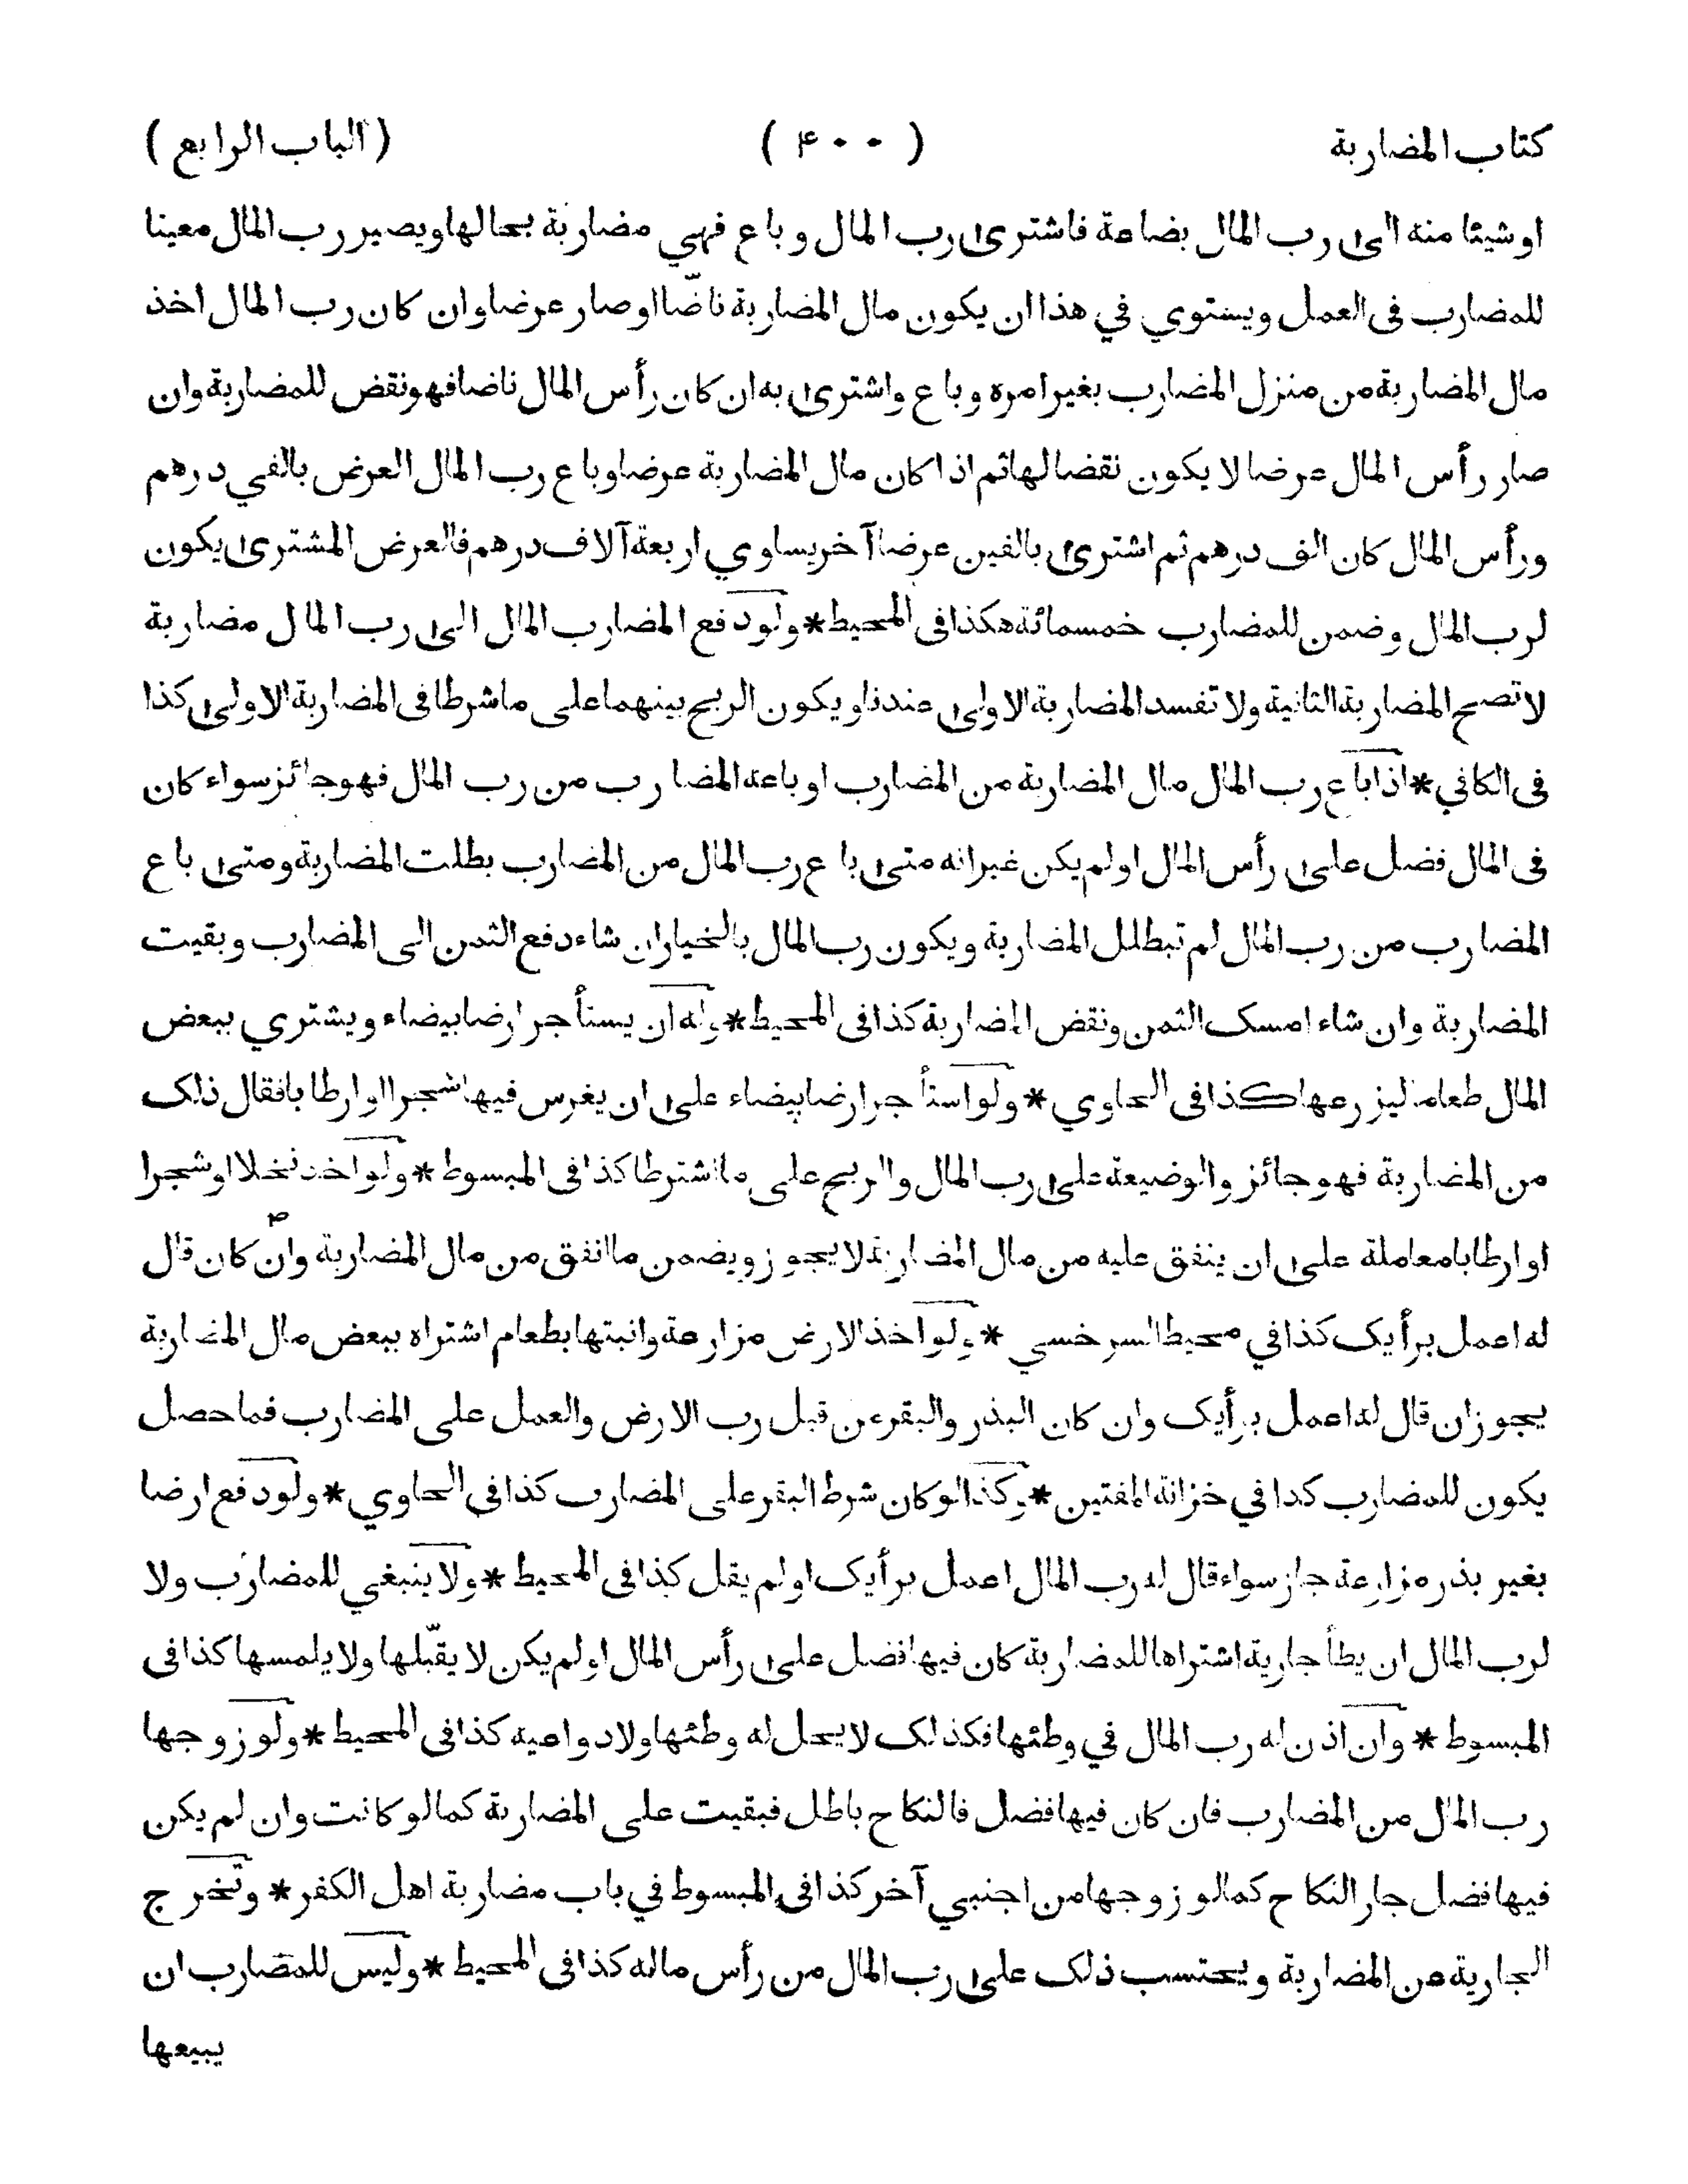 كتاب المضاربة ( ۴۰۰ ) ( الباب الرابع )
او شيئا منه الى رب المال بضاعة فاشترى رب المال و باع فهي مضاربة بحالها ويصير رب المال معينا
للمضارب في العمل ويستوي في هذا ان يكون مال المضاربة ناضّا او صار عرضا وان كان رب المال اخذ
مال المضاربة من منزل المضارب بغير امره و باع واشترى به ان كان رأس المال ناضا فهو نقض للمضاربة وان
صار رأس المال عرضا لا يكون نقضا لها ثم اذا كان مال المضاربة عرضا و باع رب المال العرض بالفي درهم
ورأس المال كان الف درهم ثم اشترى بالفين عرضا آخر يساوي اربعة آلاف درهم فالعرض المشترى يكون
لرب المال وضمن للمضارب خمسمائة هكذا في المحيط * ولو دفع المضارب المال الى رب المال مضاربة
لا تصح المضاربة الثانية ولا تفسد المضاربة الاولى عندنا ويكون الربح بينهما على ما شرطا في المضاربة الاولى كذا
في الكافي * اذا باع رب المال مال المضاربة من المضارب او باعه المضارب من رب المال فهو جائز سواء كان
في المال فضل على رأس المال او لم يكن غير انه متى باع رب المال من المضارب بطلت المضاربة ومتى باع
المضارب من رب المال لم تبطل المضاربة ويكون رب المال بالخيار ان شاء دفع الثمن الى المضارب و بقيت
المضاربة وان شاء امسك الثمن ونقض المضاربة كذا في المحيط * وله ان يستأجر ارضا بيضاء ويشتري ببعض
المال طعاما ليزرعها كذا في الحاوي * ولو استأجر ارضا بيضاء على ان يغرس فيها شجرا او ارطابا فقال ذلك
من المضاربة فهو جائز والوضيعة على رب المال والربح على ما اشترطا كذا في المبسوط * ولو اخذ نخلا او شجرا
او ارطابا معاملة على ان ينفق عليه من مال المضاربة لا يجوز ويضمن ما انفق من مال المضاربة وان كان قال
له اعمل برأيك كذا في محيط السرخسي * ولو اخذ الارض مزارعة وانبتها بطعام اشتراه ببعض مال المضاربة
يجوز ان قال له اعمل برأيك وان كان البذر والبقر من قبل رب الارض والعمل على المضارب فما حصل
يكون للمضارب كذا في خزانة المفتين * وكذا لو كان شرط البقر على المضارب كذا في الحاوي * ولو دفع ارضا
بغير بذر مزارعة جاز سواء قال له رب المال اعمل برأيك او لم يقل كذا في المحيط * ولا ينبغي للمضارب ولا
لرب المال ان يطأ جارية اشتراها للمضاربة كان فيها فضل على رأس المال او لم يكن لا يقبّلها ولا يلمسها كذا في
المبسوط * وان اذن له رب المال في وطئها فكذلك لا يحل له وطئها ولا دواعيه كذا في المحيط * ولو زوجها
رب المال من المضارب فان كان فيها فضل فالنكاح باطل فبقيت على المضاربة كما لو كانت وان لم يكن
فيها فضل جاز النكاح كما لو زوجها من اجنبي آخر كذا في المبسوط في باب مضاربة اهل الكفر * وتخرج
الجارية من المضاربة ويحتسب ذلك على رب المال من رأس ماله كذا في المحيط * وليس للمضارب ان
يبيعها